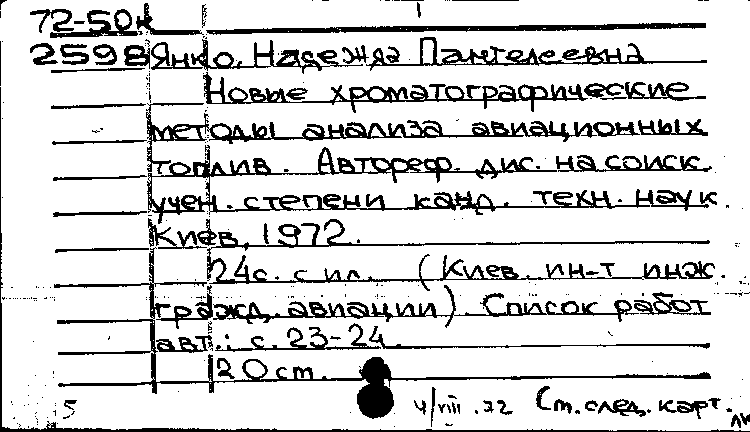 72-50к
2598 Янко, Надежда Пантелеевна
Новые хроматографические
методы анализа авиационных
топлив. Автореф. дис. на соиск.
учен. степени канд. техн. наук.
Киев, 1972.
24с. с ил. (Киев. ин-т инж.
гражд. авиации). Список работ
авт.: с. 23-24.
20 см.
5 4/VIII.72 См. след. карт.